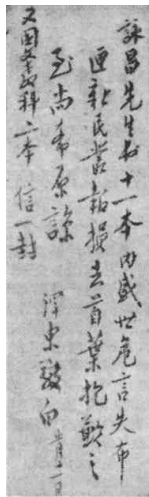 詠昌先生書十一本内盛世危言失布
匣新民叢報損去首葉抱歉之
至尚希原諒
澤東敬白
又國文教科二本 信一封